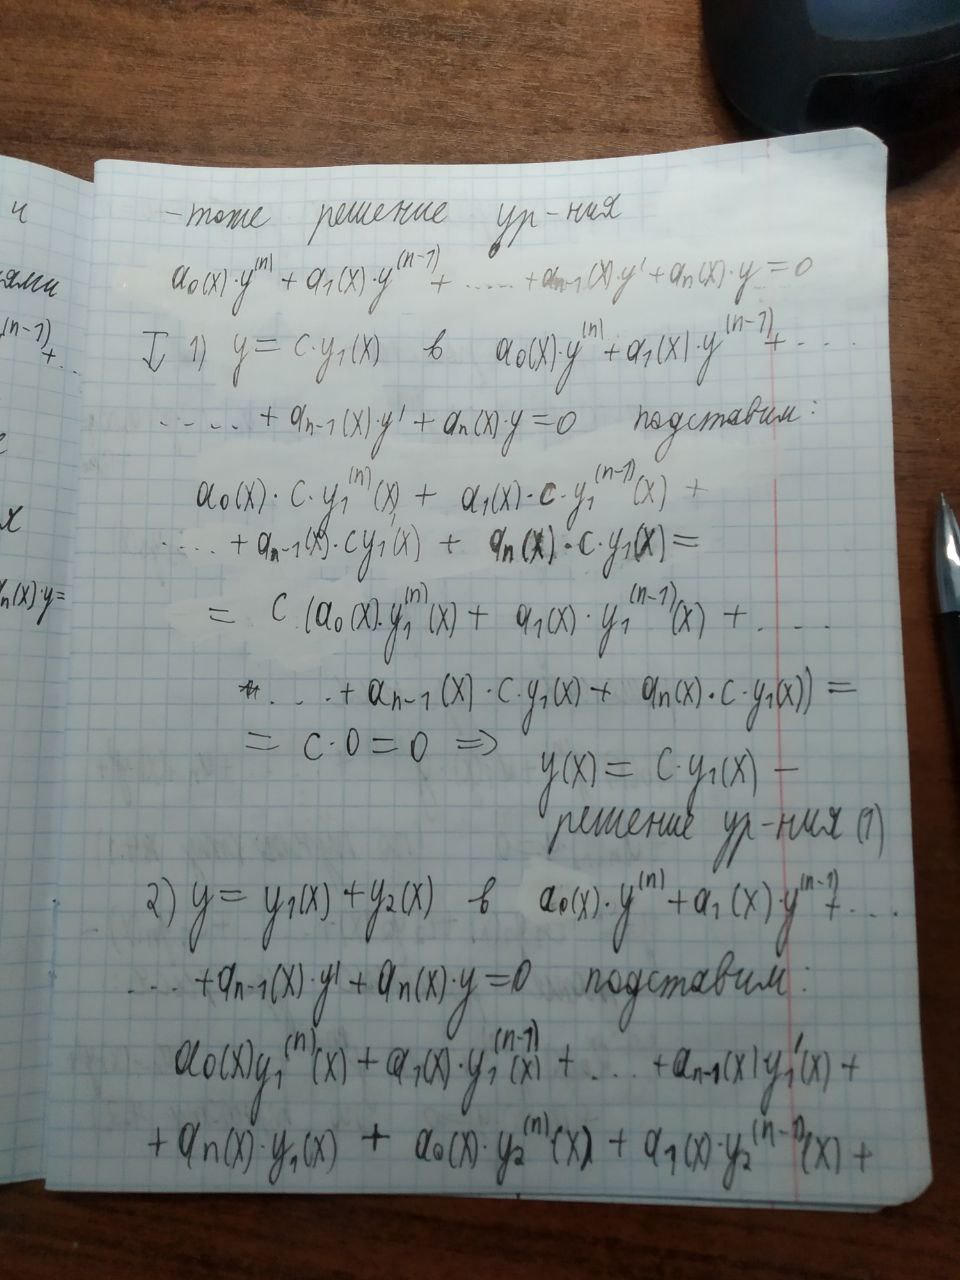 - тоже решение ур-ния
a₀(x)·y⁽ⁿ⁾ + a₁(x)·y⁽ⁿ⁻¹⁾ + ..... + aₙ₋₁(x)y' + aₙ(x)·y = 0
1) y = c·y₁(x) в a₀(x)·y⁽ⁿ⁾ + a₁(x)·y⁽ⁿ⁻¹⁾ + ...
..... + aₙ₋₁(x)·y' + aₙ(x)·y = 0 подставим:
a₀(x)·c·y₁⁽ⁿ⁾(x) + a₁(x)·c·y₁⁽ⁿ⁻¹⁾(x) +
..... + aₙ₋₁(x)·cy₁'(x) + aₙ(x)·c·y₁(x) =
= c·(a₀(x)·y₁⁽ⁿ⁾(x) + a₁(x)·y₁⁽ⁿ⁻¹⁾(x) + ....
.... + aₙ₋₁(x)·c·y₁(x) + aₙ(x)·c·y₁(x)) =
= c·0 = 0 ⇒ y(x) = c·y₁(x) –
решение ур-ния (1)
2) y = y₁(x) + y₂(x) в a₀(x)·y⁽ⁿ⁾ + a₁(x)·y⁽ⁿ⁻¹⁾ + ...
... + aₙ₋₁(x)·y' + aₙ(x)·y = 0 подставим:
a₀(x)y₁⁽ⁿ⁾(x) + a₁(x)·y₁⁽ⁿ⁻¹⁾(x) + .... + aₙ₋₁(x)y₁'(x) +
+ aₙ(x)·y₁(x) + a₀(x)·y₂⁽ⁿ⁾(x) + a₁(x)·y₂⁽ⁿ⁻¹⁾(x) +